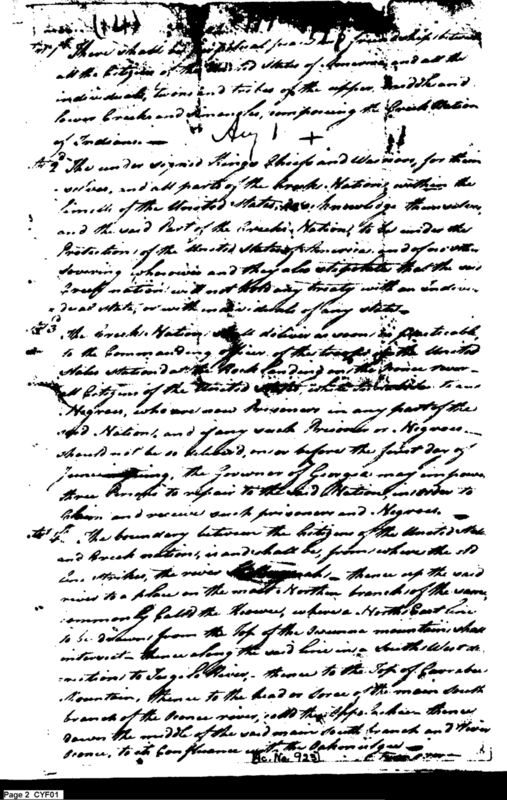 (4)
There shall be perpetual peace & friendship between
all the Citizens of the United States of America, and all the
individuals, towns and tribes of the upper, middle and
lower Creeks and Semanoles, composing the Creek Nation
of Indians. —
Arg 1 +
2d The under signed Kings Chiefs and Warriors, for them
selves, and all parts of the Creek Nation, within the
limits of the United States, do acknowledge themselves,
and the said Part of the Creek Nation, to be under the
Protection of the United States of America and of no other
sovering whosoever and they also stipulate that the said
Creek nation will not hold any treaty with an indivi-
dual State, or with individuals of any state —
3
The Creek Nation shall deliver as soon as practicable,
to the Commanding officer of the troops of the United
States stationed at the Rock landing on the Oconee river —
all Citizens of the United States, white
Negroes, who are now Prisoners in any part of the
said Nation, and if any such Prisoner or Negroes —
should not be so delivered, on or before the first day of
June the Governor of Georgia may impower
three Persons to repair to the said Nation, in order to
Claim and receive such prisoners and Negroes. —
The boundary between the Citizens of the United States
and Creek nation, is and shall be, from where the old
line strikes, the river — thence up the said
river to a place on the most Northern branch of the same,
commonly Called the Keowee, where a North East line
to be drawn from the Top of the mountain shall
intersect — thence along the said line in a South West di-
rection to Tugelo River — thence to the Top of Currahee
Mountain, thence to the head or sorce of the main South
branch of the Oconee river, called the thence
down the middle of the said main South branch and River
Oconee, to its Confluance with the Oakmulgee —
Ac. No. 923
Page 2 CYF01